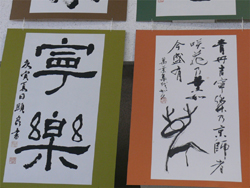 寧樂
庚寅夏日
青丹吉寧樂乃京師者
咲花乃薫如
今盛有